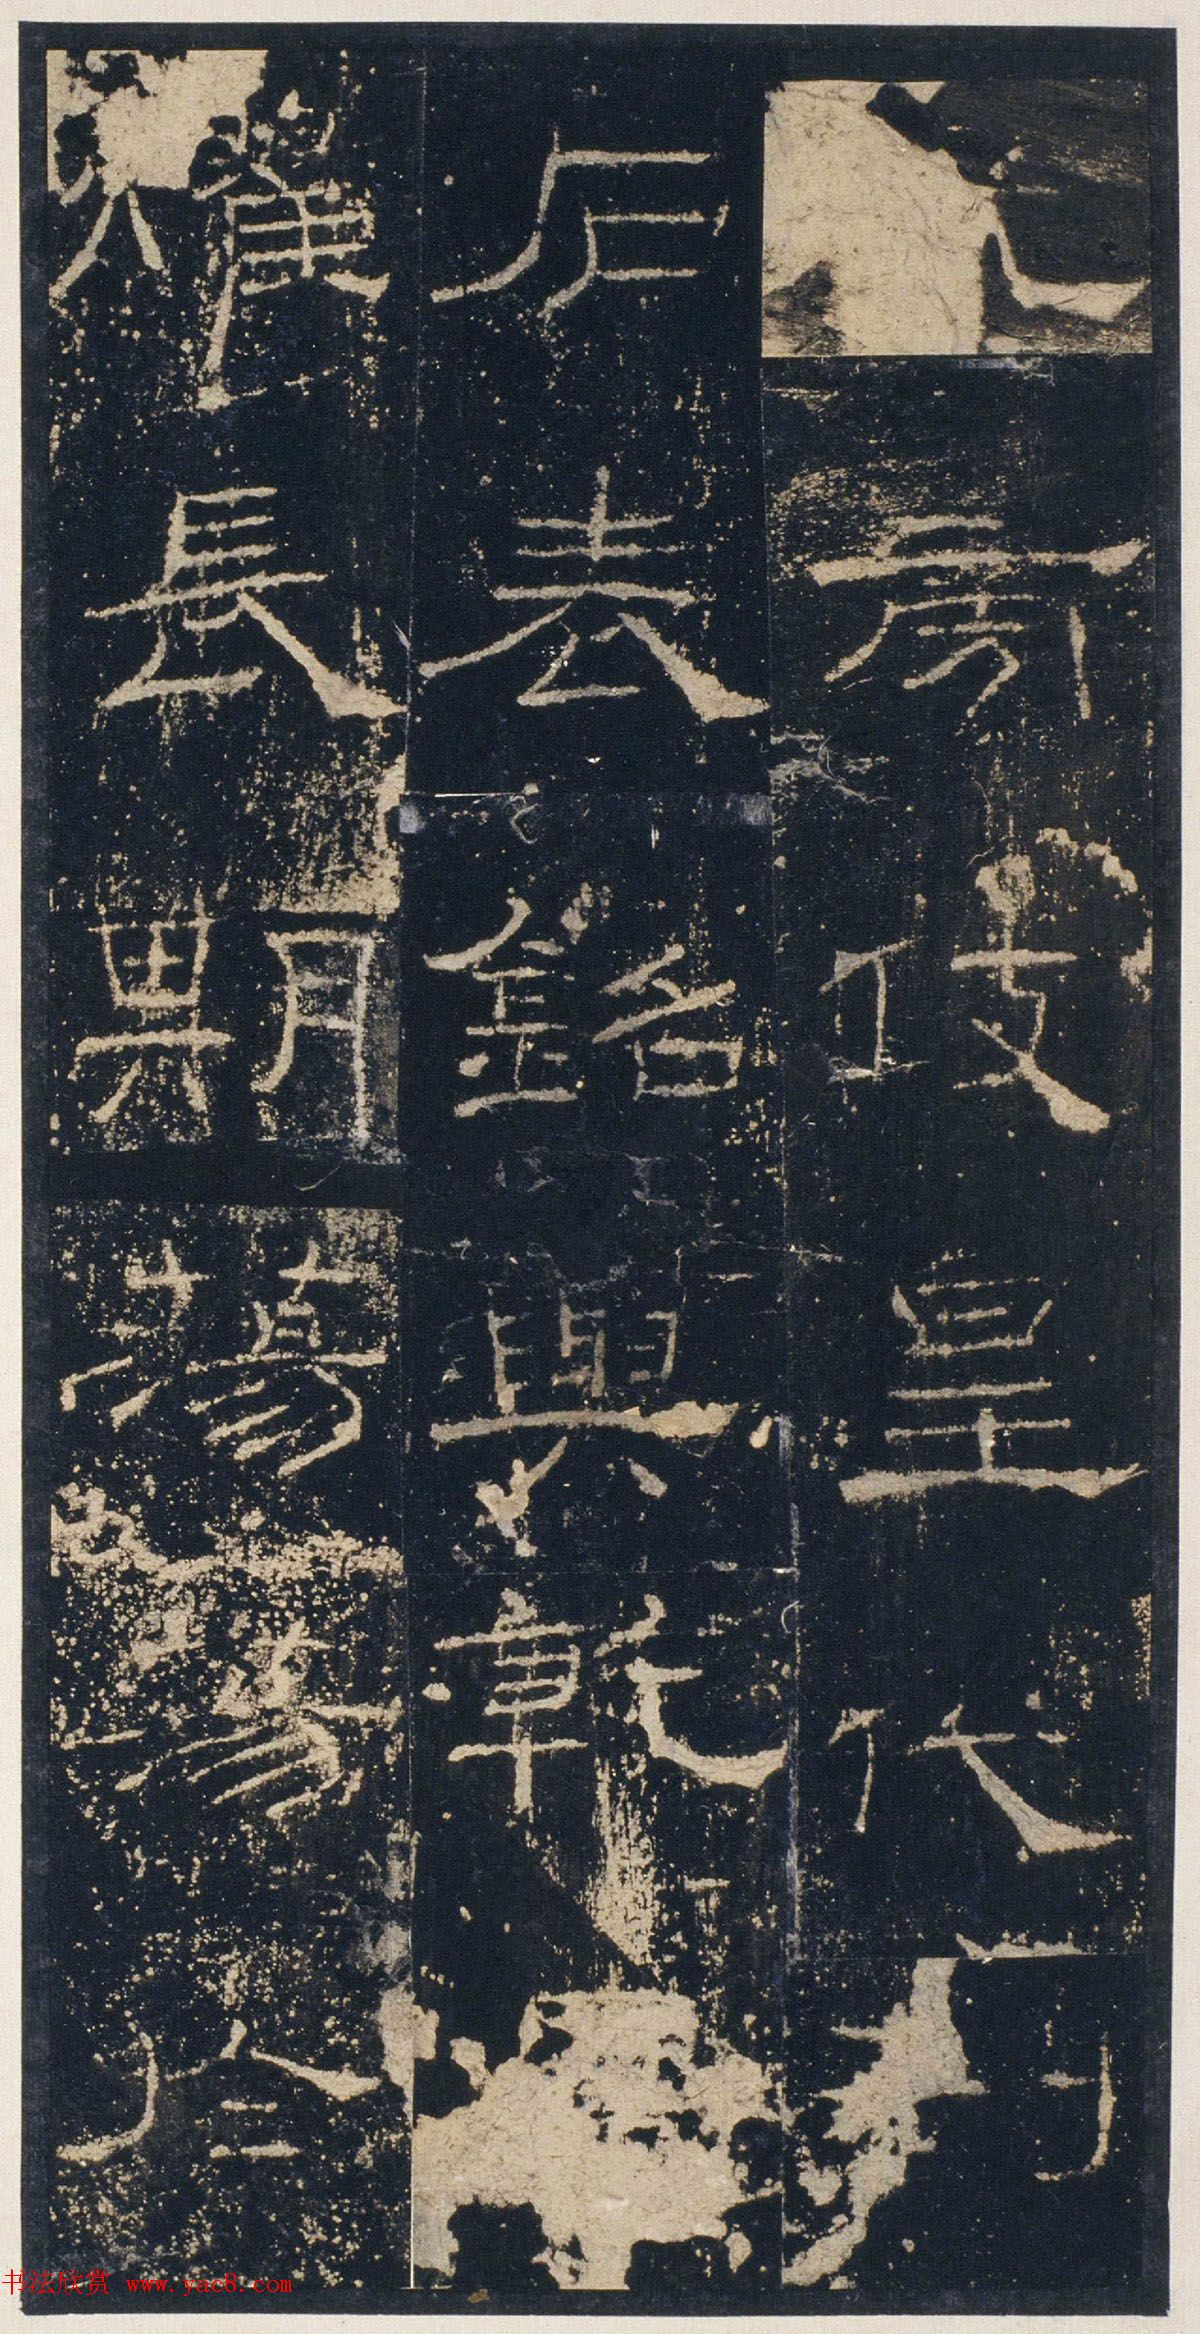 旁伎皇代刊
石表銘與乾
燿長期蕩蕩於
书法欣赏 www.yac8.com